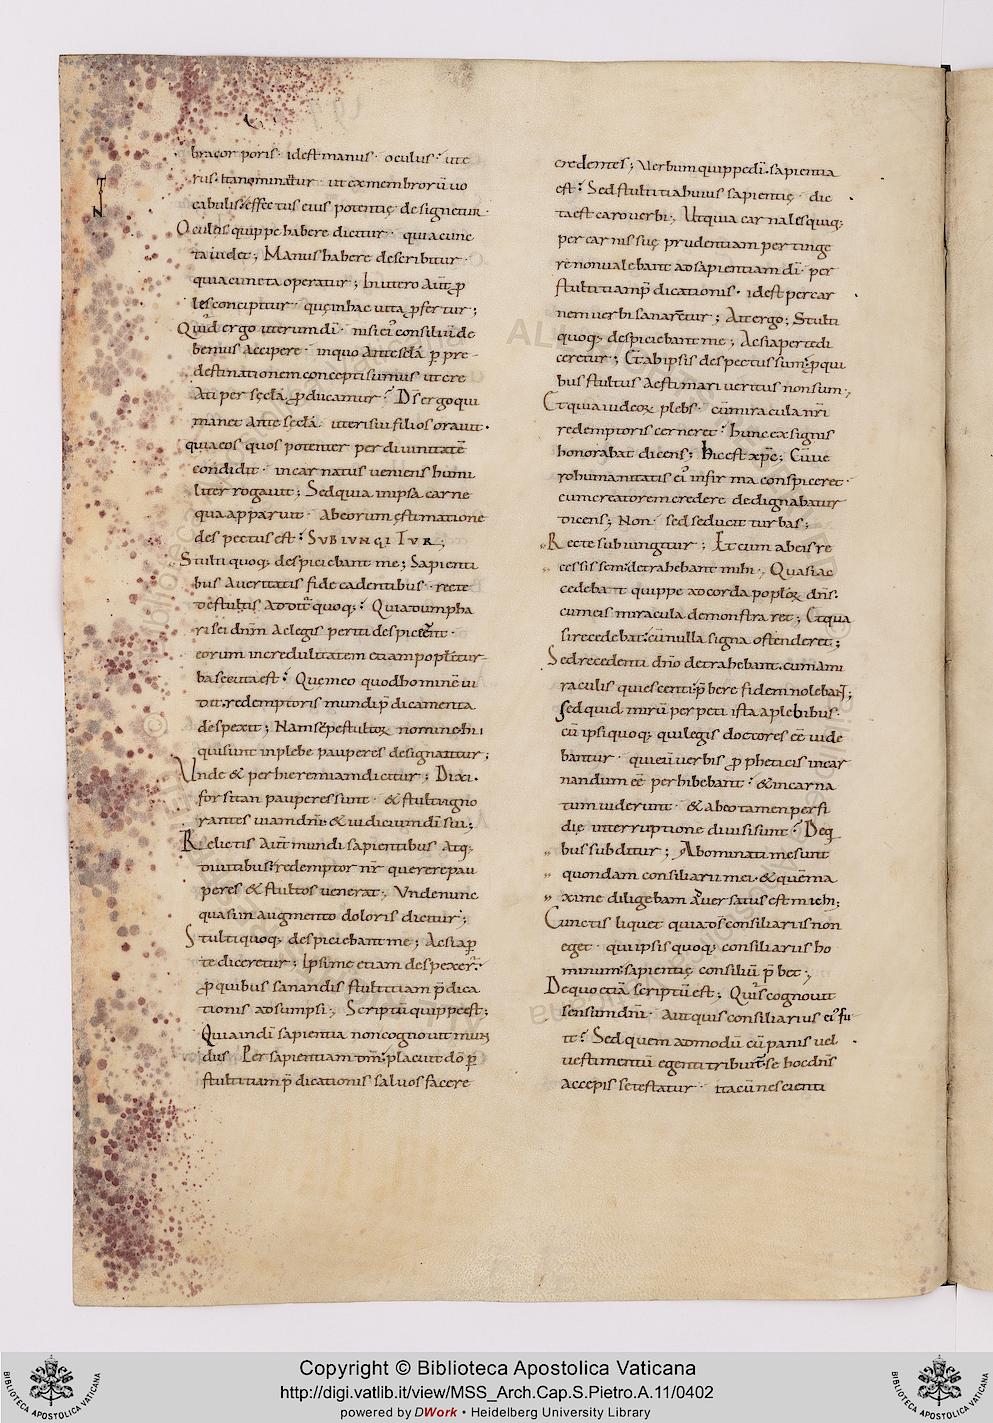 bra corporis · id est manus · oculus · ute
rus · ita nominatur · ut ex membrorū vo
cabulis · effectus eius potentię designetur ·
Oculos quippe habere dicitur · quia cunc
ta videt ; Manus habere describitur ·
quia cuncta operatur ; In utero aut̄ p
les concipitur · quę in hac vita ꝓfertur ;
Quid ergo uterum dī · nisi ei' consiliū de
bemus accipere · in quo ante sęcla p pre-
destinationem concepti sumus ut cre
ati per sęcla ꝓducamur · Ds̄ ergo qui
manet ante sęcla · uteri sui filios oravit ·
quia eos quos potenter per divinitatē
condidit · incarnatus veniens humi
liter rogavit ; Sed quia in ipsa carne
qua apparuit · ab eorum ęstimatione
despectus est · SUBIUNGITUR ;
Stulti quoq; despiciebant me ; Sapienti
bus a veritatis fide cadentibus · recte
de stultis additᷓ quoq; · Quia dum pha
risei dn̄m ac legis periti despicerent ·
eorum incredulitatem etiam popli tur-
ba secuta est · Quę in eo quod hominē vi
dit · redemptoris mundi p̄dicamenta
despexit ; Nam sępe stultoꝝ nomine hi
qui sunt in plebe pauperes designantur ;
Unde & per hieremiam dicitur ; Dixi ·
forsitan pauperes sunt · & stulti igno
rantes viam dn̄i · & iudicium dī sui ;
Relictis aut̄ mundi sapientibus atq;
divitibus · redemptor nr̄ querere pau
peres & stultos venerat ; Unde nunc
quasi in augmento doloris dicitur ;
Stulti quoq; despiciebant me ; Ac si ap
te diceretur ; Ipsi me etiam despexer̄ ·
ꝓ quibus sanandis stultitiam p̄dica
tionis adsumpsi ; Scriptū quippe est ;
Quia in dī sapientia non cognovit mun
dus · Per sapientiam dm̄ · placuit dō p
stultitiam p̄dicationis salvos facere
credentes ; Verbum quippe dī · sapientia
est · Sed stultitia huius sapientię · dic
ta est caro verbi ; Ut quia carnales quiq;
per carnis suę prudentiam pertinge
re non valebant ad sapientiam dī · per
stultitiam p̄dicationis · id est per car
nem verbi sanarentur ; Ait ergo ; Stulti
quoq; despiciebant me ; Ac si aperte di
ceretur ; Et ab ipsis despectus sum · p qui
bus stultus aestimari veritus non sum ;
Et quia iudeoꝝ plebs · cū miracula nr̄i
redemptoris cerneret · hunc ex signis
honorabat dicens ; Hic est xp̄c ; Cū ve
ro humanitatis ei' infirma conspiceret ·
eum creatorem credere dedignabatur
dicens ; Non · sed seducit turbas ;
Recte subiungitur ; Et cum ab eis re
cessissem · detrahebant mihi ; Quasi ac
cedebat quippe ad corda poploꝝ dn̄s ·
cum eis miracula demonstraret ; Et qua
si recedebat · cū nulla signa ostenderet ;
Sed recedenti dn̄o detrahebant · cum a mi
raculis quiescenti · p̄bere fidem nolebant ;
Sed quid mirū perpeti ista a plebibus ·
cū ipsi quoq; qui legis doctores eē vide
bantur · qui eū verbis ꝓpheticis incar
nandum eē perhibebant · & incarna
tum viderunt · & ab eo tamen perfi
dię interruptione divisi sunt · De q
bus subditur ; Abominati me sunt
quondam consiliarii mei · & quē ma
xime diligebam aversatus est michi ;
Cunctis liquet quia ds̄ consiliariis non
eget · qui ipsis quoq; consiliariis ho
minum · sapientię consiliū p̄bet ;
De quo etiā scriptū est ; Quis cognovit
sensum dn̄i · Aut quis consiliarius ei' fu
it · Sed quem admodū cū panis vel
vestimentū egenti tribuit̄ · se hoc dn̄s
accepisse testatur · ita cū nescienti
ALL RIGHTS RESERVED
Copyright © Biblioteca Apostolica Vaticana
http://digi.vatlib.it/view/MSS_Arch.Cap.S.Pietro.A.11/0402
powered by DWork • Heidelberg University Library
BIBLIOTECA APOSTOLICA VATICANA
BIBLIOTECA APOSTOLICA VATICANA